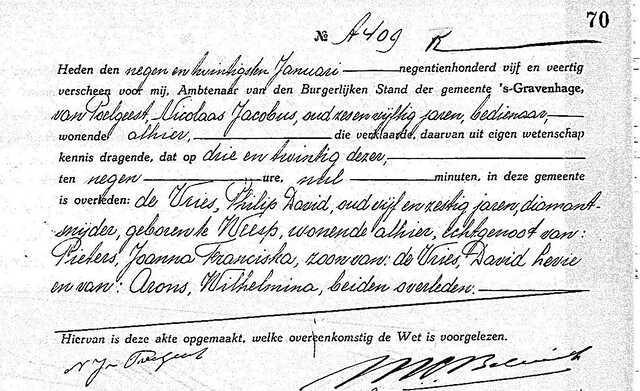 70
№ A409 R
Heden den negen en twintigsten Januari negentienhonderd vijf en veertig
verscheen voor mij, Ambtenaar van den Burgerlijken Stand der gemeente 's-Gravenhage,
van Poelgeest, Nicolaas Jacobus, oud zes en vijftig jaren, bedienaar,
wonende alhier, die verklaarde, daarvan uit eigen wetenschap
kennis dragende, dat op drie en twintig dezer,
ten negen ure, nul minuten, in deze gemeente
is overleden: de Vries, Philip David, oud vijf en zestig jaren, diamant-
snijder, geboren te Weesp, wonende alhier, echtgenoot van:
Pieters, Joanna Franciska, zoon van: de Vries, David Levie
en van: Arons, Wilhelmina, beiden overleden.
Hiervan is deze akte opgemaakt, welke overeenkomstig de Wet is voorgelezen.
N J v Poelgeest